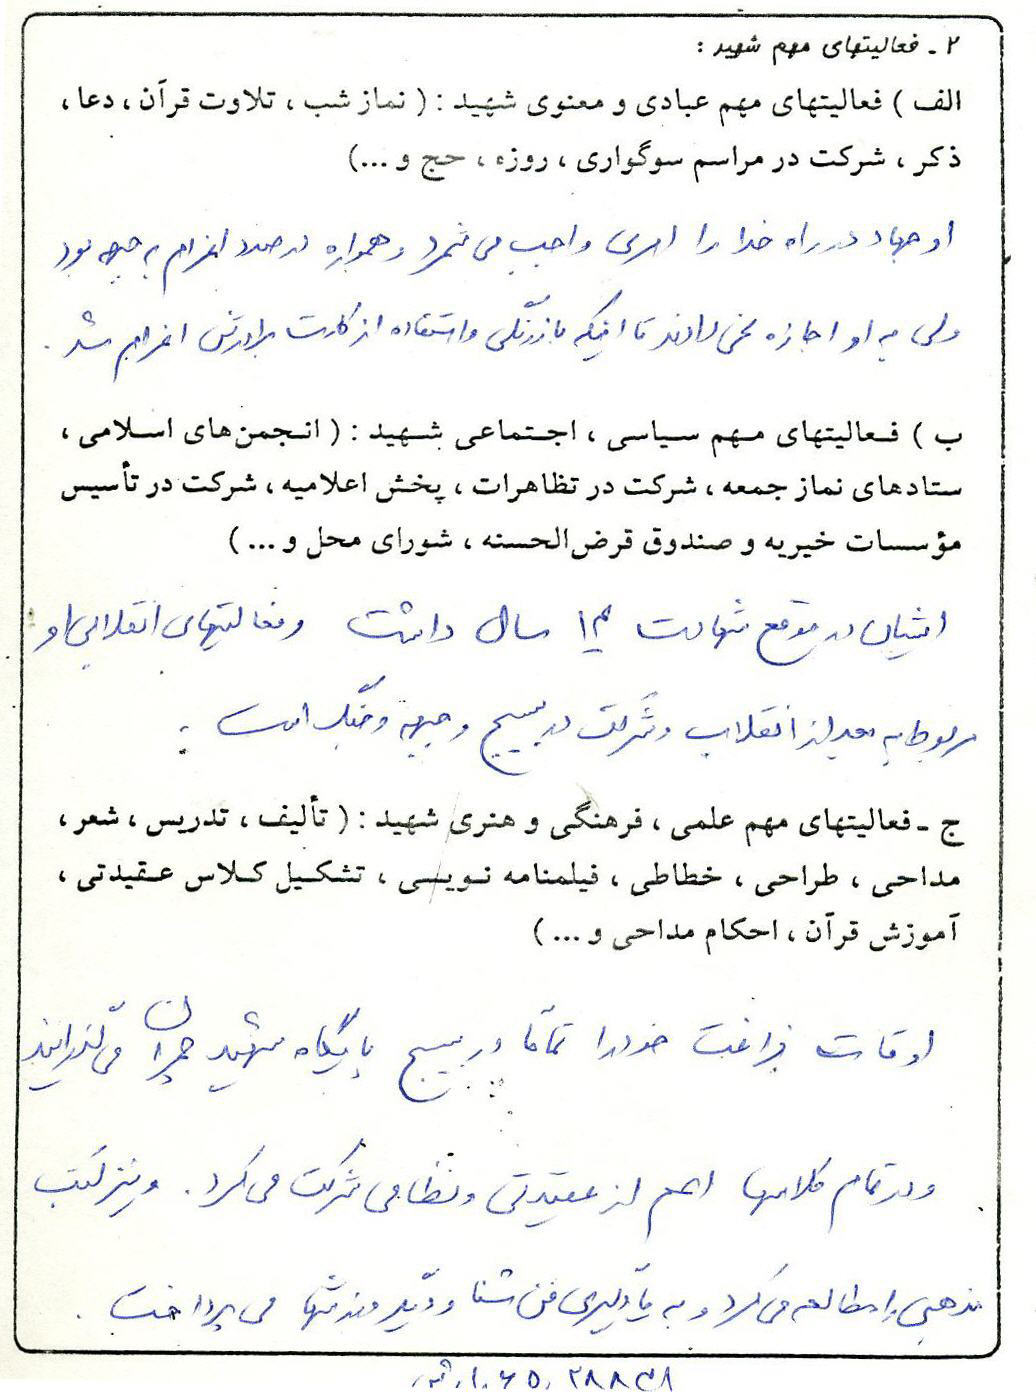 ۲ ـ فعالیتهای مهم شهید :
الف ) فعالیتهای مهم عبادی و معنوی شهید : ( نماز شب ، تلاوت قرآن ، دعا ،
ذکر ، شرکت در مراسم سوگواری ، روزه ، حج و ...)
او جهاد در راه خدا را امری واجب می شمرد و همواره در صدد اعزام به جبهه بود
ولی به او اجازه نمی دادند تا اینکه با زرنگی و استفاده از کارت برادرش اعزام شد .
ب ) فعالیتهای مهم سیاسی ، اجتماعی شهید : ( انجمن‌های اسلامی ،
ستادهای نماز جمعه ، شرکت در تظاهرات ، پخش اعلامیه ، شرکت در تأسیس
مؤسسات خیریه و صندوق قرض‌الحسنه ، شورای محل و ... )
ایشان در موقع شهادت ۱۴ سال داشت و فعالیتهای انقلابی او
مربوط به بعد از انقلاب و شرکت در بسیج و جبهه و جنگ است .
ج ـ فعالیتهای مهم علمی ، فرهنگی و هنری شهید : ( تألیف ، تدریس ، شعر ،
مداحی ، طراحی ، خطاطی ، فیلمنامه نویسی ، تشکیل کلاس عقیدتی ،
آموزش قرآن ، احکام مداحی و ... )
اوقات فراغت خود را تماماً در بسیج پایگاه شهید چمران می گذرانید
و در تمام کلاسها اعم از عقیدتی و نظامی شرکت می کرد . و نیز کتب
مذهبی را مطالعه می کرد و به یادگیری فن شنا و دیگر ورزشها می پرداخت .